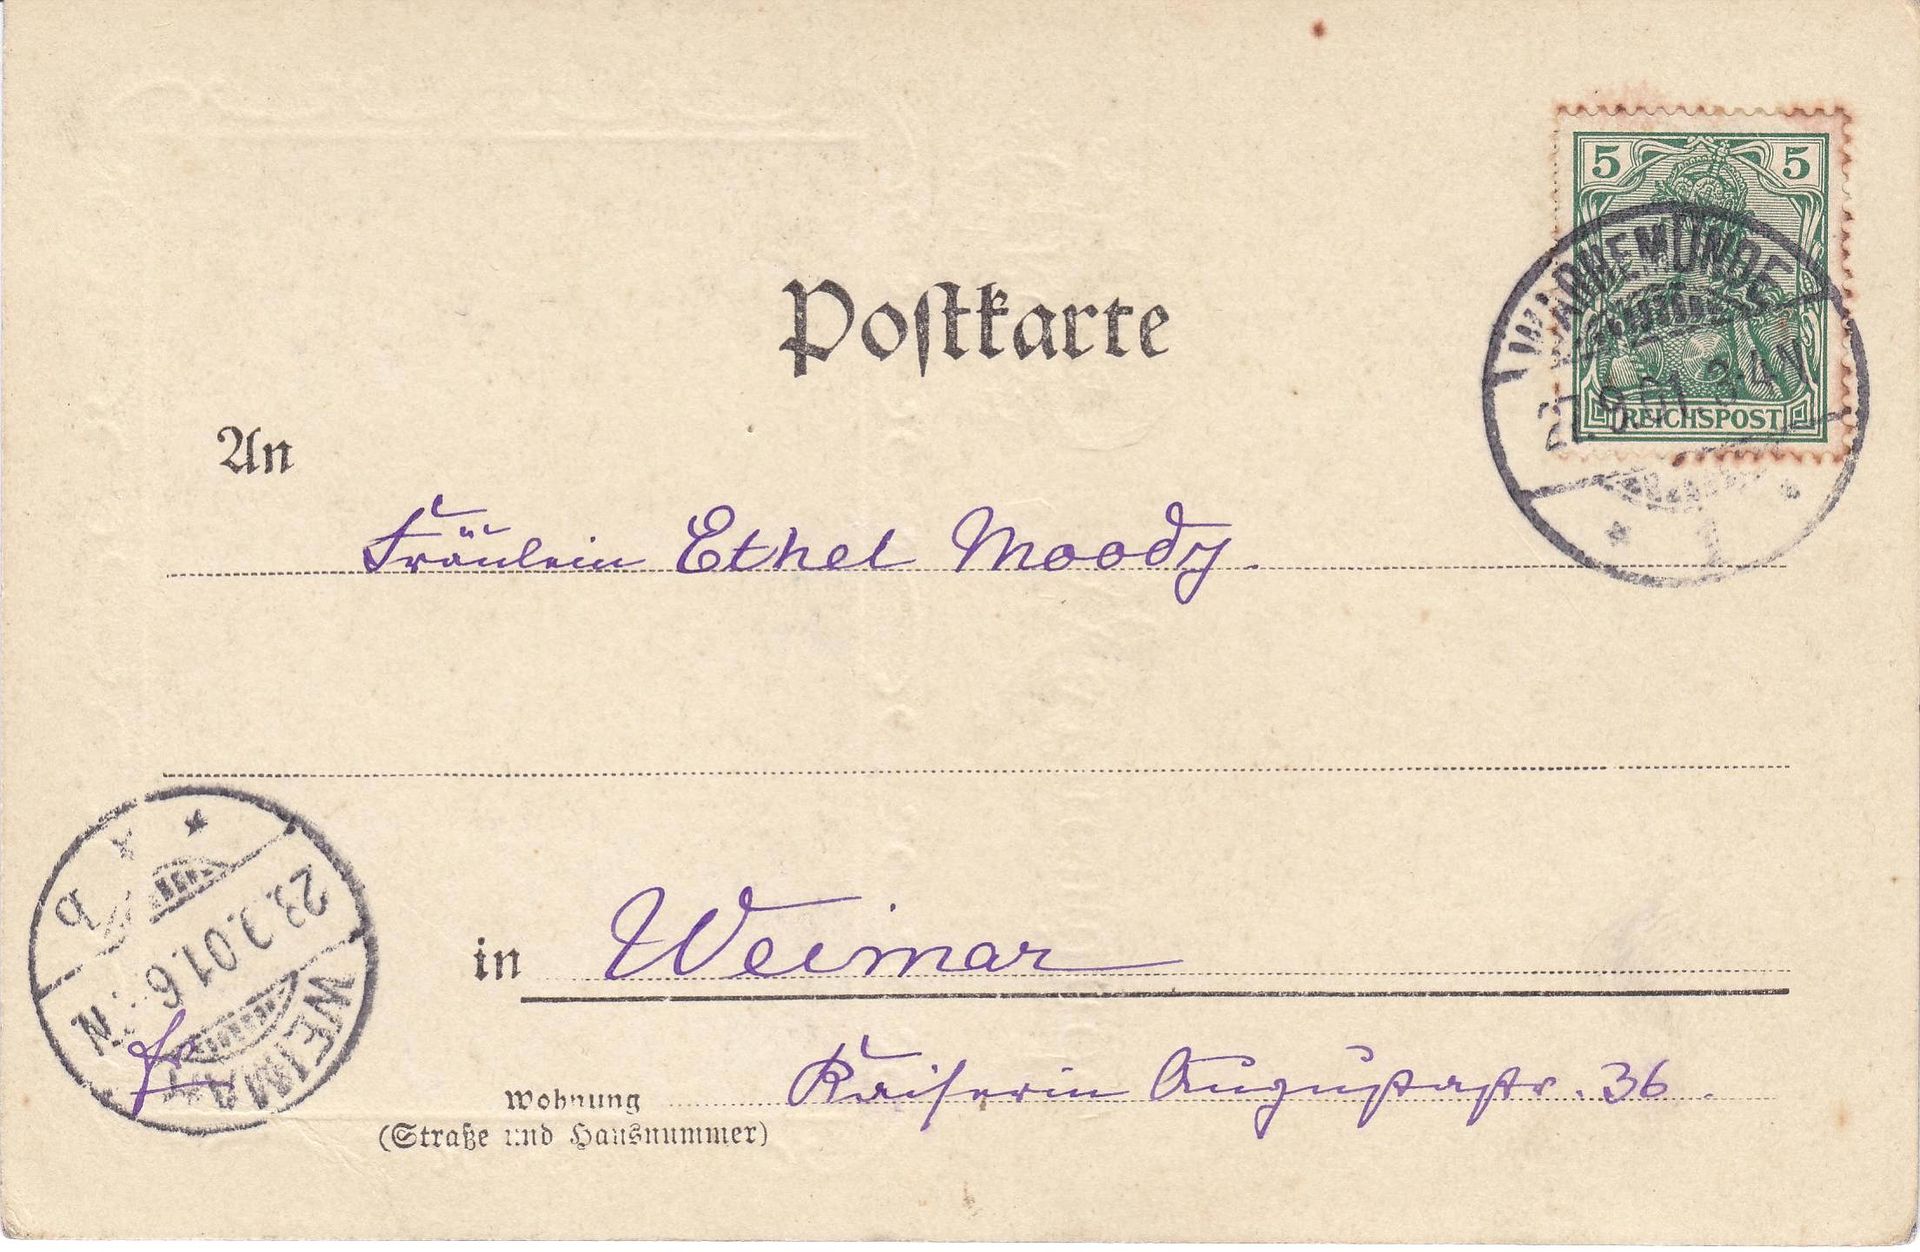 5 5
WARNEMÜNDE
9.01. 3-4N
REICHSPOST
* 1
Postkarte
An
Fräulein Ethel Moody.
in Weimar
Wohnung Kaiserin Augustastr. 36.
(Straße und Hausnummer)
WEIMAR
23.9.01.6 N
* * b